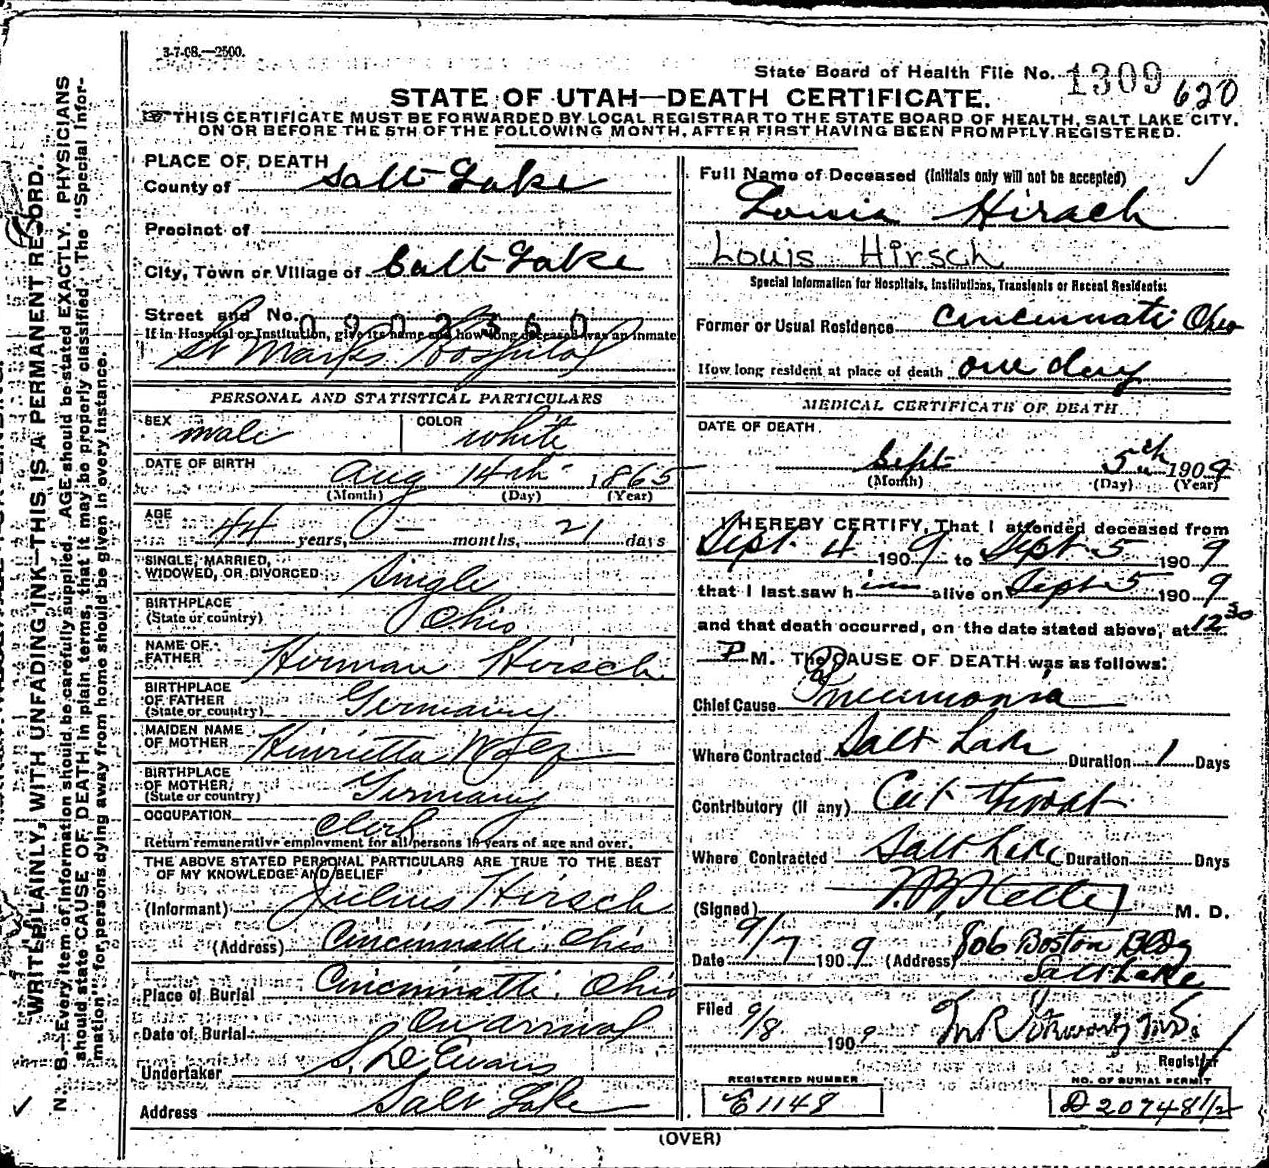 3-7-08.—2500.
State Board of Health File No. 1309 620
STATE OF UTAH—DEATH CERTIFICATE.
THIS CERTIFICATE MUST BE FORWARDED BY LOCAL REGISTRAR TO THE STATE BOARD OF HEALTH, SALT LAKE CITY,
ON OR BEFORE THE 5TH OF THE FOLLOWING MONTH, AFTER FIRST HAVING BEEN PROMPTLY REGISTERED.
WRITE PLAINLY, WITH UNFADING INK—THIS IS A PERMANENT RECORD.
N. B.—Every item of information should be carefully supplied. AGE should be stated EXACTLY. PHYSICIANS
should state CAUSE OF DEATH in plain terms, that it may be properly classified. The "Special Infor-
mation" for persons dying away from home should be given in every instance.
PLACE OF DEATH
County of Salt Lake
Precinct of
City, Town or Village of Salt Lake
Street and No. 0902360
If in Hospital or Institution, give its name and how long deceased was an inmate
St Marks Hospital
PERSONAL AND STATISTICAL PARTICULARS
SEX male COLOR white
DATE OF BIRTH Aug 14th 1865
(Month) (Day) (Year)
AGE 44 years, — months, 21 days
SINGLE, MARRIED,
WIDOWED, OR DIVORCED Single
BIRTHPLACE
(State or country) Ohio
NAME OF
FATHER Herman Hirsch
BIRTHPLACE
OF FATHER
(State or country) Germany
MAIDEN NAME
OF MOTHER Henrietta
BIRTHPLACE
OF MOTHER
(State or country) Germany
OCCUPATION Clerk
Return remunerative employment for all persons 10 years of age and over.
THE ABOVE STATED PERSONAL PARTICULARS ARE TRUE TO THE BEST
OF MY KNOWLEDGE AND BELIEF
(Informant) Julius Hirsch
(Address) Cincinnatti, Ohio
Place of Burial Cincinnatti, Ohio
Date of Burial On arrival
Undertaker S. D Evans
Address Salt Lake
Full Name of Deceased (Initials only will not be accepted)
Louis Hirsch
Louis Hirsch
Special Information for Hospitals, Institutions, Transients or Recent Residents:
Former or Usual Residence Cincinnati Ohio
How long resident at place of death one day
MEDICAL CERTIFICATE OF DEATH
DATE OF DEATH
Sept 5th 1909
(Month) (Day) (Year)
I HEREBY CERTIFY, That I attended deceased from
Sept. 4 1909 to Sept 5 1909
that I last saw him alive on Sept 5 1909
and that death occurred, on the date stated above, at 12 30
P M. The CAUSE OF DEATH was as follows:
Chief Cause Pneumonia
Where Contracted Salt Lake Duration 1 Days
Contributory (if any) Cut throat
Where Contracted Salt Lake Duration Days
(Signed) M. D.
Date 9/7 1909 (Address) 806 Boston Bldg
Salt Lake
Filed 9/8 1909
Registrar
REGISTERED NUMBER
E1148
NO. OF BURIAL PERMIT
D 20748 1/2
(OVER)